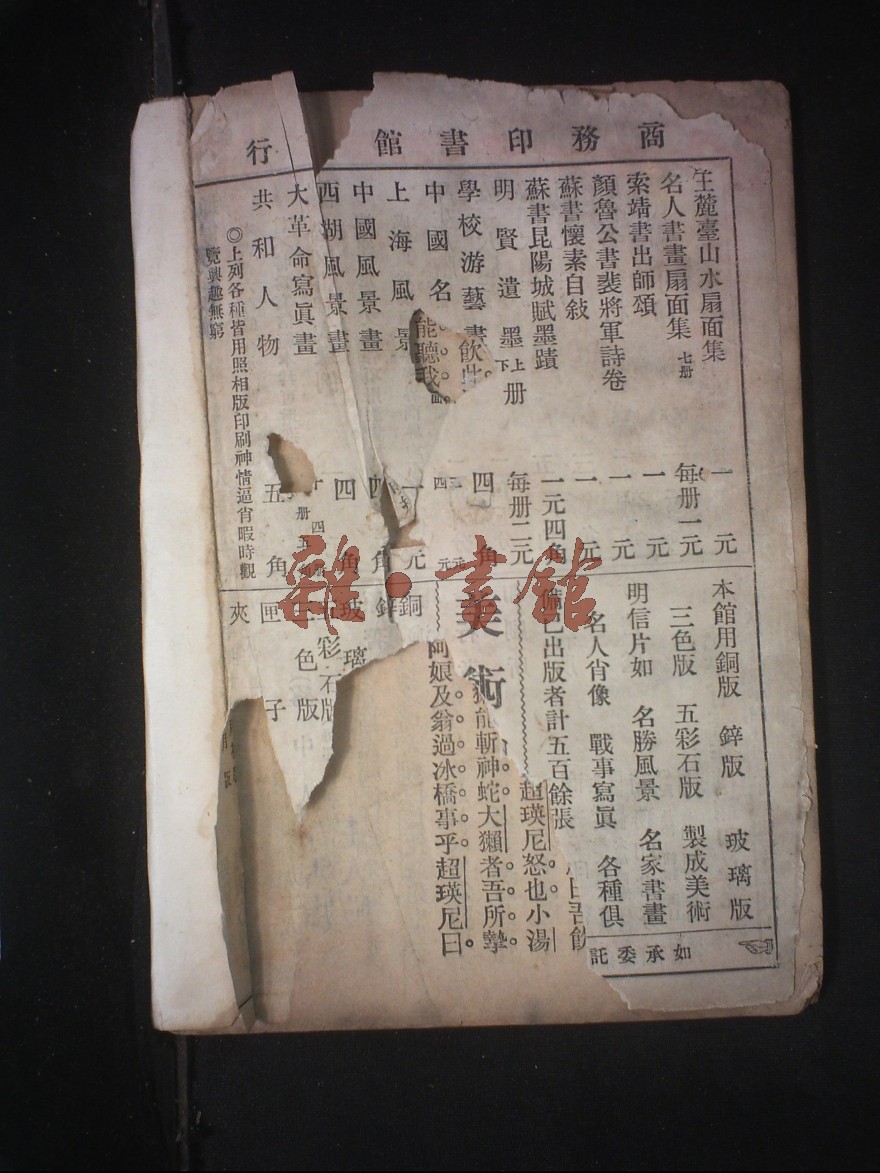 商務印書館 行
王麓臺山水扇面集 一元
名人書畫扇面集 七册 每册一元
索靖書出師頌 一元
顏魯公書裴將軍詩卷 一元
蘇書懷素自敍 一元
蘇書昆陽城賦墨蹟 一元四角
明賢遺墨 上下册 每册二元
學校游藝畫 四角
中國名
上海風景 一元
中國風景畫 角
西湖風景畫 四角
大革命寫眞畫
共和人物 五角
◎上列各種皆用照相版印刷神情逼肖暇時觀
覽興趣無窮
飲此
能聽我
本館用銅版 鋅版 玻璃版
三色版 五彩石版 製成美術
明信片如 名勝風景 名家書畫
名人肖像 戰事寫眞 各種俱
備已出版者計五百餘張
美術
銅
鋅
玻璃
五彩石版
三色版
匣子
夾
如承委託
超瑛尼怒也小湯
能斬神蛇大獺者吾所摯
阿娘及翁過冰橋事乎超瑛尼曰
雜·書館